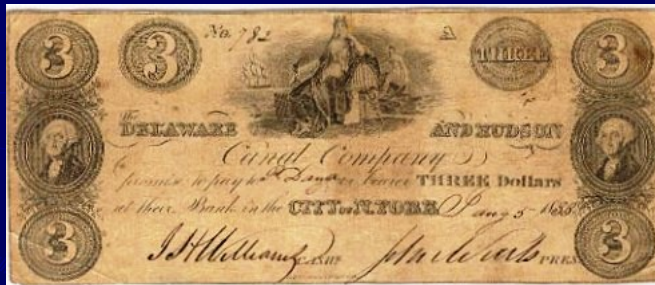 3 3 No. 782 A THREE 3
The
DELAWARE AND HUDSON
Canal Company
promise to pay to or bearer THREE Dollars
at their Bank in the CITY of N.YORK 5
3 3
CASHR. PRES